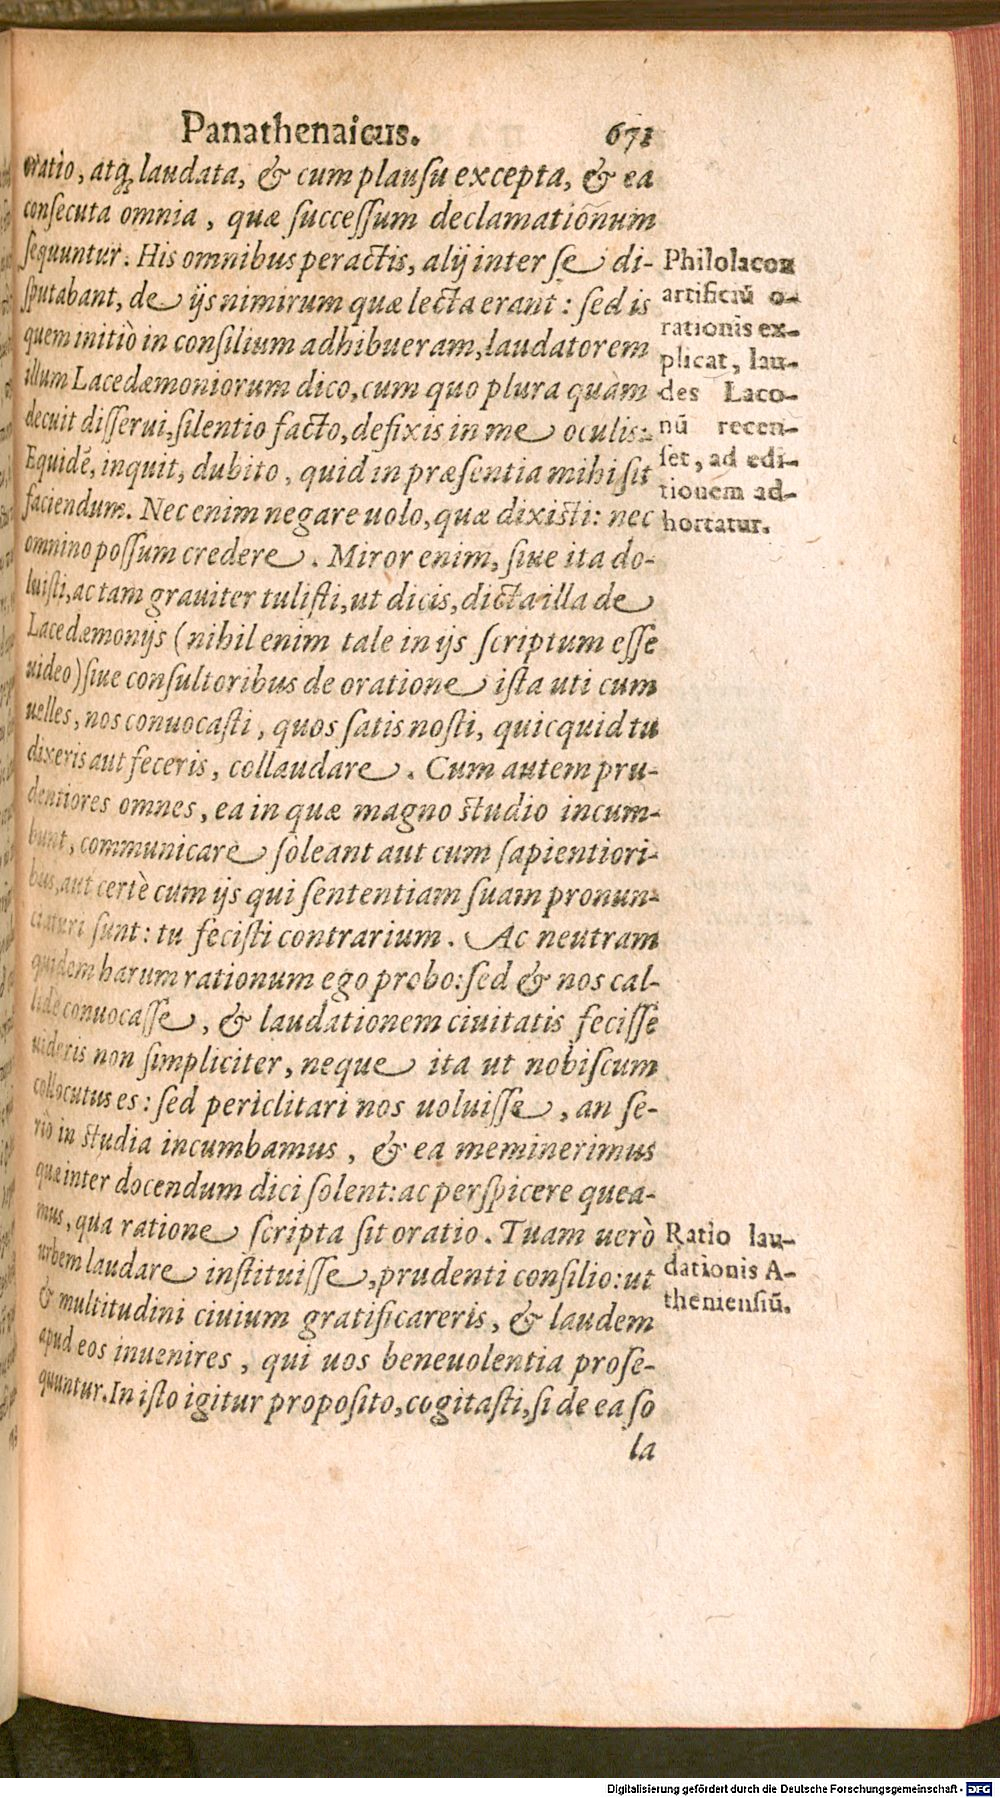 Panathenaicus. 671
oratio, atq́; laudata, & cum plausu excepta, & ea
consecuta omnia, quæ successum declamationum
sequuntur. His omnibus peractis, alij inter se di-
sputabant, de ijs nimirum quæ lecta erant: sed is
quem initiò in consilium adhibueram, laudatorem
illum Lacedæmoniorum dico, cum quo plura quàm
decuit disserui, silentio facto, defixis in me oculis:
Equidē, inquit, dubito, quid in præsentia mihi sit
faciendum. Nec enim negare uolo, quæ dixisti: nec
omnino possum credere. Miror enim, siue ita do-
luisti, ac tam grauiter tulisti, ut dicis, dicta illa de
Lacedæmonijs (nihil enim tale in ijs scriptum esse
uideo) siue consultoribus de oratione ista uti cum
uelles, nos conuocasti, quos satis nosti, quicquid tu
dixeris aut feceris, collaudare. Cum autem pru-
dentiores omnes, ea in quæ magno studio incum-
bunt, communicare soleant aut cum sapientiori-
bus, aut certè cum ijs qui sententiam suam pronun-
ciaturi sunt: tu fecisti contrarium. Ac neutram
quidem harum rationum ego probo: sed & nos cal-
lide conuocasse, & laudationem ciuitatis fecisse
uideris non simpliciter, neque ita ut nobiscum
collocutus es: sed periclitari nos uoluisse, an se-
riò in studia incumbamus, & ea meminerimus
quæ inter docendum dici solent: ac perspicere quea-
mus, qua ratione scripta sit oratio. Tuam uerò
urbem laudare instituisse, prudenti consilio: ut
& multitudini ciuium gratificareris, & laudem
apud eos inuenires, qui uos beneuolentia prose-
quuntur. In isto igitur proposito, cogitasti, si de ea so
la
Philolacon
artificiū o-
rationis ex-
plicat, lau-
des Laco-
nū recen-
set, ad edi-
tionem ad-
hortatur.
Ratio lau-
dationis A-
theniensiū.
Digitalisierung gefördert durch die Deutsche Forschungsgemeinschaft - DFG